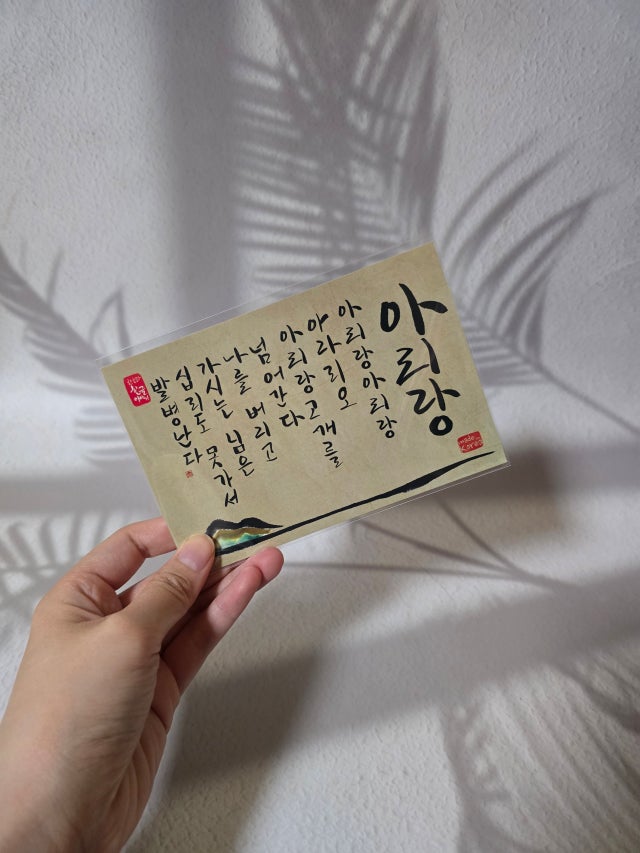 아리랑
아리랑 아리랑
아라리오
아리랑 고개를
넘어간다
나를 버리고
가시는 님은
십리도 못가서
발병난다
made
Korea